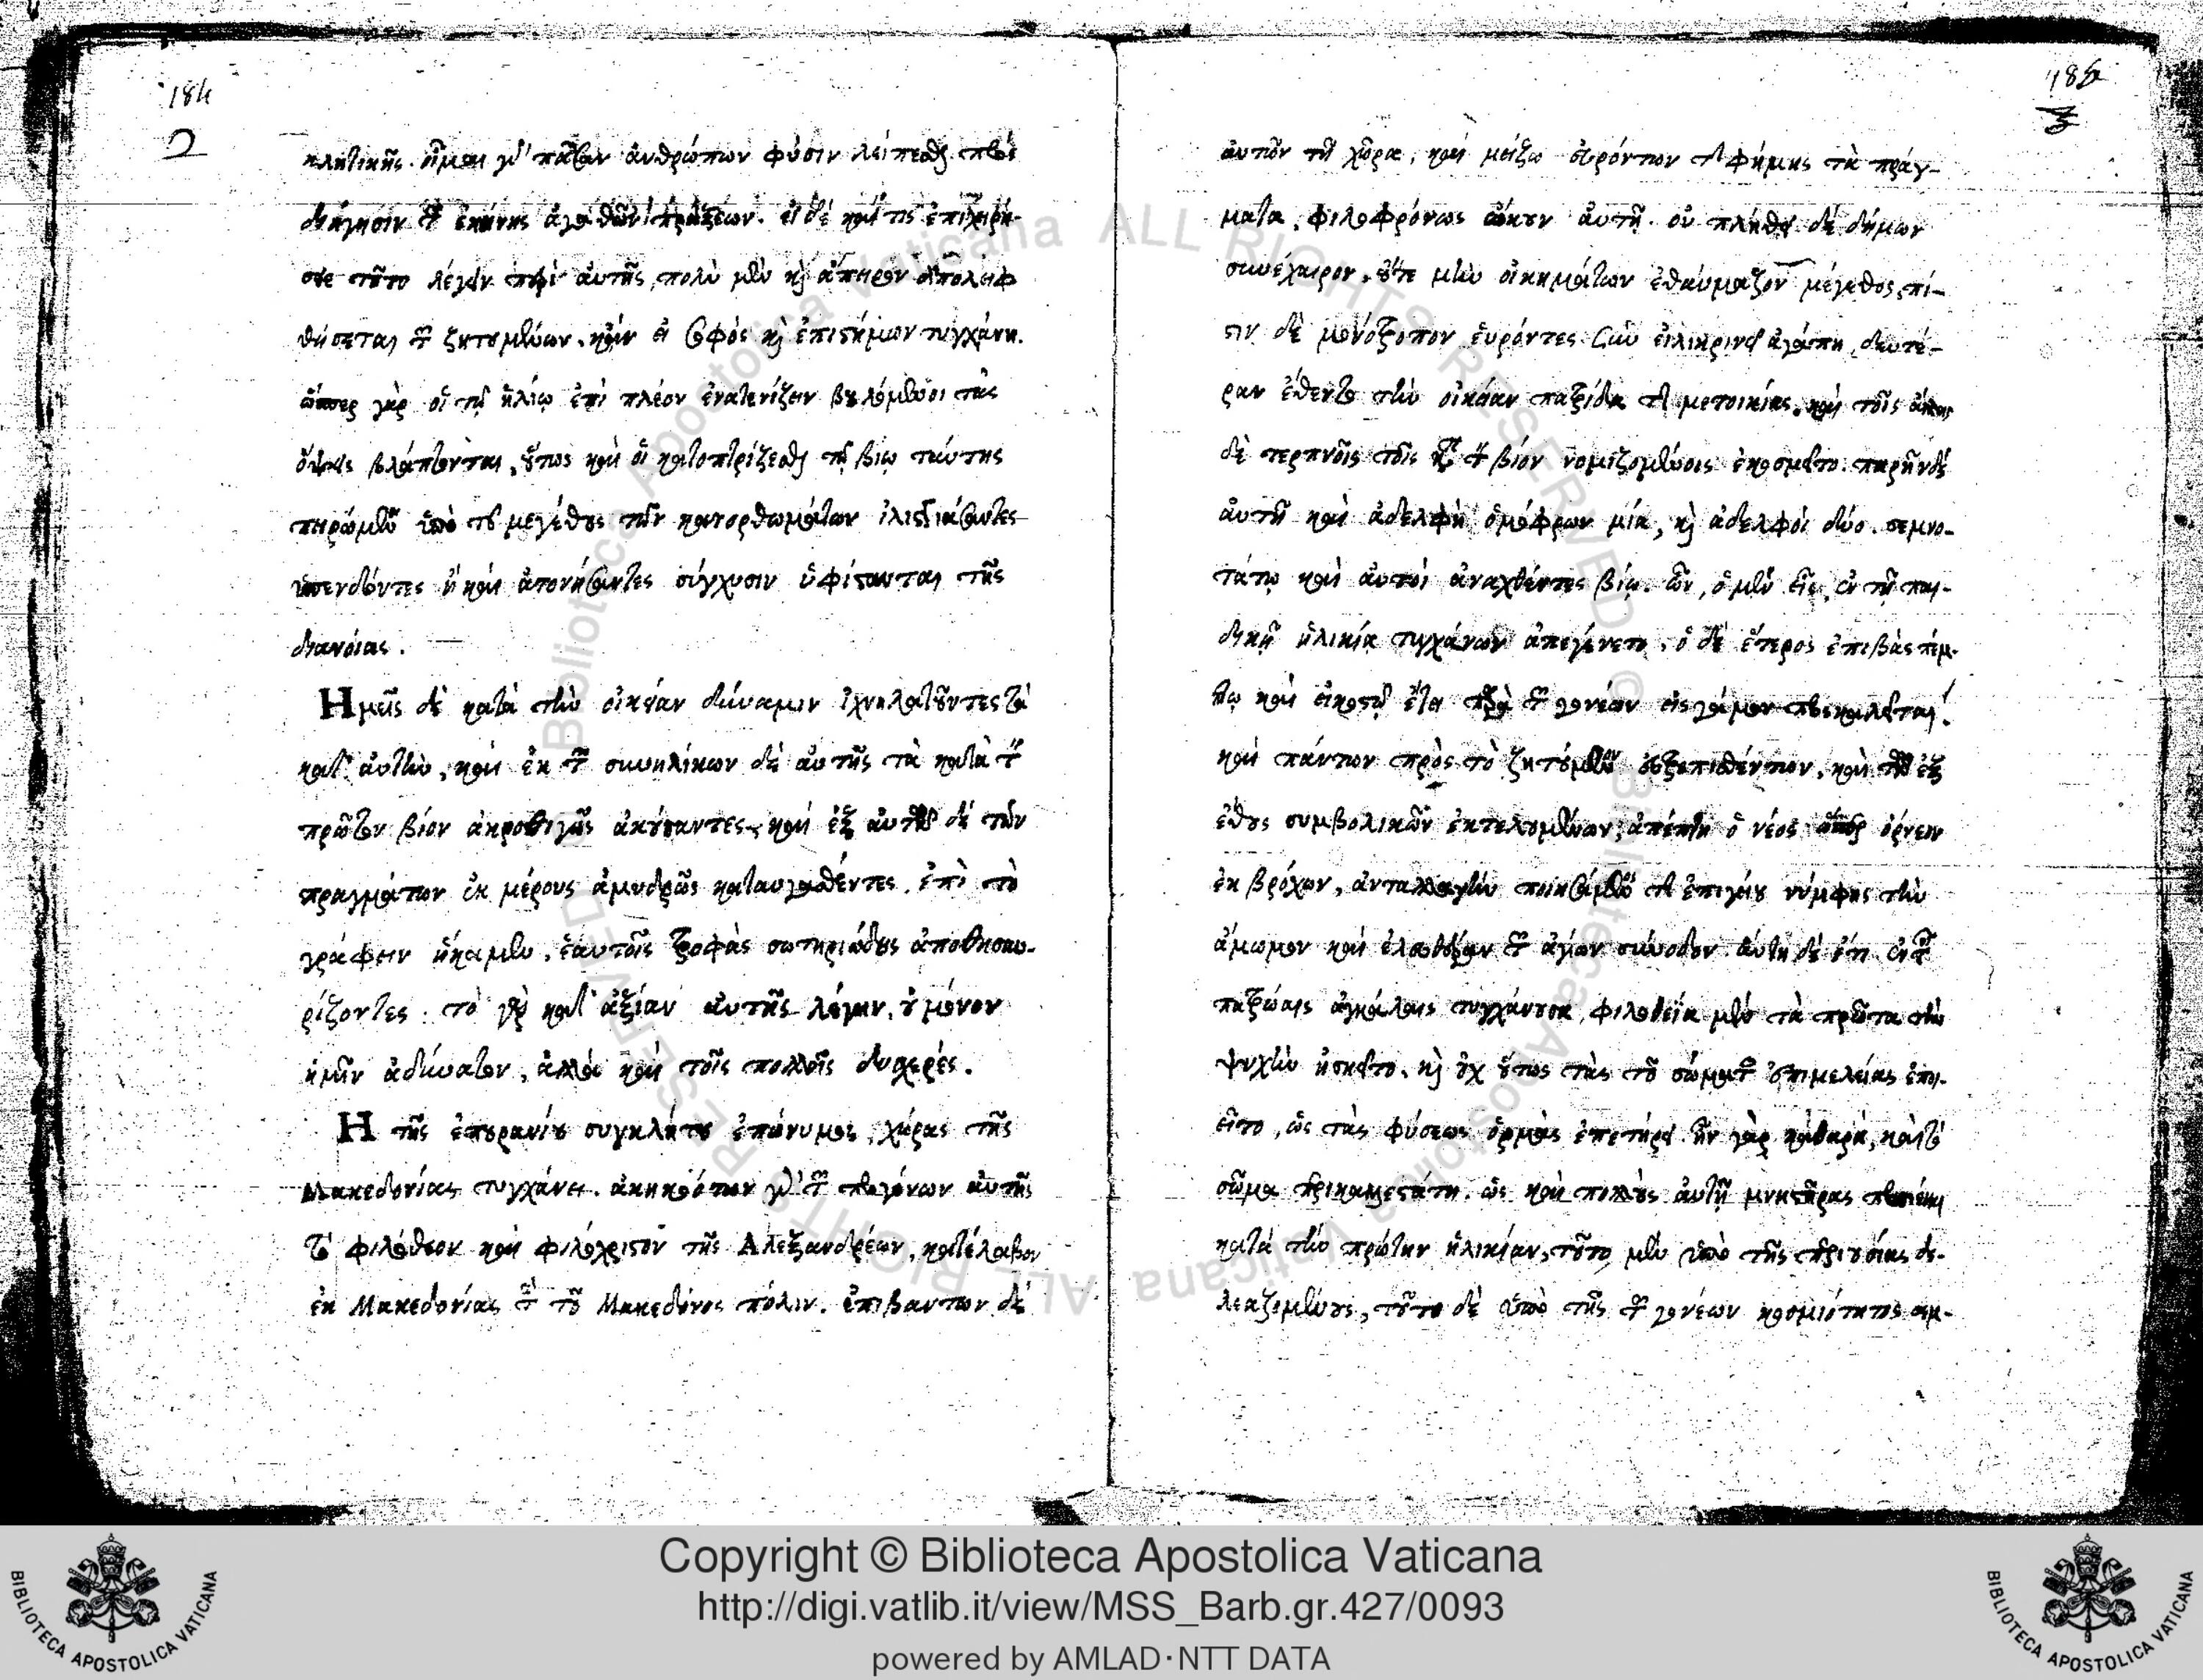 184
2
κλητικῆς. οἶμαι γὰρ πᾶσαν ἀνθρώπων φύσιν λείπεσθαι πρὸς
διήγησιν τῶν ἐκείνης ἀγαθῶν πράξεων. εἰ δὲ καί τις ἐπιχειρή-
σειε τοῦτο λέγειν περὶ αὐτῆς, πολὺ μὲν καὶ ἄπειρον
θήσεται τῶν ζητουμένων, κἂν εἰ σοφὸς καὶ ἐπιστήμων τυγχάνῃ.
ὥσπερ γὰρ οἱ τῷ ἡλίῳ ἐπὶ πλέον ἐνατενίζειν βουλόμενοι τὰς
ὄψεις βλάπτονται, οὕτως καὶ οἱ κατοπτρίζεσθαι τῷ βίῳ ταύτης
πειρώμενοι ὑπὸ τοῦ μεγέθους τῶν κατορθωμάτων ἰλιγγιάσαντες
ὑπενδόντες ἢ καὶ ἀτονήσαντες σύγχυσιν ὑφίστανται τῆς
διανοίας.
Ἡμεῖς δὲ κατὰ τὴν οἰκείαν δύναμιν ἰχνηλατοῦντες τὰ
κατ' αὐτὴν, καὶ ἐκ τῶν συνηλίκων δὲ αὐτῆς τὰ κατὰ τὸν
πρῶτον βίον ἀκροθιγῶς ἀκούσαντες, καὶ ἐξ αὐτῶν δὲ τῶν
πραγμάτων ἐκ μέρους ἀμυδρῶς καταυγασθέντες, ἐπὶ τὸ
γράφειν ἥκαμεν, ἑαυτοῖς τροφὰς σωτηριώδεις ἀποθησαυ-
ρίζοντες. τὸ γὰρ κατ' ἀξίαν αὐτῆς λέγειν, οὐ μόνον
ἡμῖν ἀδύνατον, ἀλλὰ καὶ τοῖς πολλοῖς δυσχερές.
Ἡ τῆς ἐπουρανίου συγκλήτου ἐπώνυμος, χώρας τῆς
Μακεδονίας τυγχάνει. ἀκηκοότων γὰρ τῶν προγόνων αὐτῆς
τὸ φιλόθεον καὶ φιλόχριστον τῆς Ἀλεξανδρέων, κατέλαβον
ἐκ Μακεδονίας τὴν τοῦ Μακεδόνος πόλιν. ἐπιβάντων δὲ
185
αὐτῶν τῇ χώρᾳ, καὶ μείζω εὑρόντων τῆς φήμης τὰ πράγ-
ματα, φιλοφρόνως ᾤκουν αὐτῇ. οὐ πλήθει δὲ δήμων
συνέχαιρον, οὔτε μὴν οἰκημάτων ἐθαύμαζον μέγεθος, πί-
στιν δὲ μονότροπον εὑρόντες σὺν εἰλικρινεῖ ἀγάπῃ, δευτέ-
ραν ἔθεντο τὴν οἰκείαν πατρίδα τῆς μετοικίας. καὶ τοῖς ἄλλοις
δὲ τερπνοῖς τοῖς κατὰ τὸν βίον νομιζομένοις ἐκοσμεῖτο. παρῆν δὲ
αὐτῇ καὶ ἀδελφὴ ὁμόφρων μία, καὶ ἀδελφοὶ δύο. σεμνο-
τάτῳ καὶ αὐτοὶ ἀναχθέντες βίῳ. ὧν, ὁ μὲν εἷς, ἐν τῇ παι-
δικῇ ἡλικίᾳ τυγχάνων ἀπεγένετο, ὁ δὲ ἕτερος ἐπιβὰς πέμ-
πτῳ καὶ εἰκοστῷ ἔτει παρὰ τῶν γονέων εἰς γάμον προσκαλεῖται.
καὶ πάντων πρὸς τὸ ζητούμενον εὐτρεπισθέντων, καὶ τῶν ἐξ
ἔθους συμβολικῶν ἐκτελουμένων, ἀπέπτη ὁ νέος ὥσπερ ὄρνεον
ἐκ βρόχων, ἀνταλλαγὴν ποιησάμενος τῆς ἐπιγείου νύμφης τὴν
ἄμωμον καὶ ἐλευθέραν τῶν ἁγίων σύνοδον. αὕτη δὲ ἔτι ἐν ταῖς
πατρῴαις ἀγκάλαις τυγχάνουσα, φιλοθεΐᾳ μὲν τὰ πρῶτα τὴν
ψυχὴν ἠσκεῖτο. καὶ οὐχ οὕτως τὰς τοῦ σώματος ἐπιμελείας ἐποι-
εῖτο, ὡς τὰς φύσεως ὁρμὰς ἐπετήρει. ἦν γὰρ καθαρὰ, καὶ τὸ
σῶμα περικαλλεστάτη. ὡς καὶ πολλοὺς αὐτῇ μνηστῆρας
κατὰ τὴν πρώτην ἡλικίαν, τοῦτο μὲν ὑπὸ τῆς περιουσίας δε-
λεαζομένους, τοῦτο δὲ ὑπὸ τῆς τῶν γονέων κοσμιότητος
Copyright © Biblioteca Apostolica Vaticana
http://digi.vatlib.it/view/MSS_Barb.gr.427/0093
powered by AMLAD·NTT DATA
BIBLIOTECA APOSTOLICA VATICANA
BIBLIOTECA APOSTOLICA VATICANA